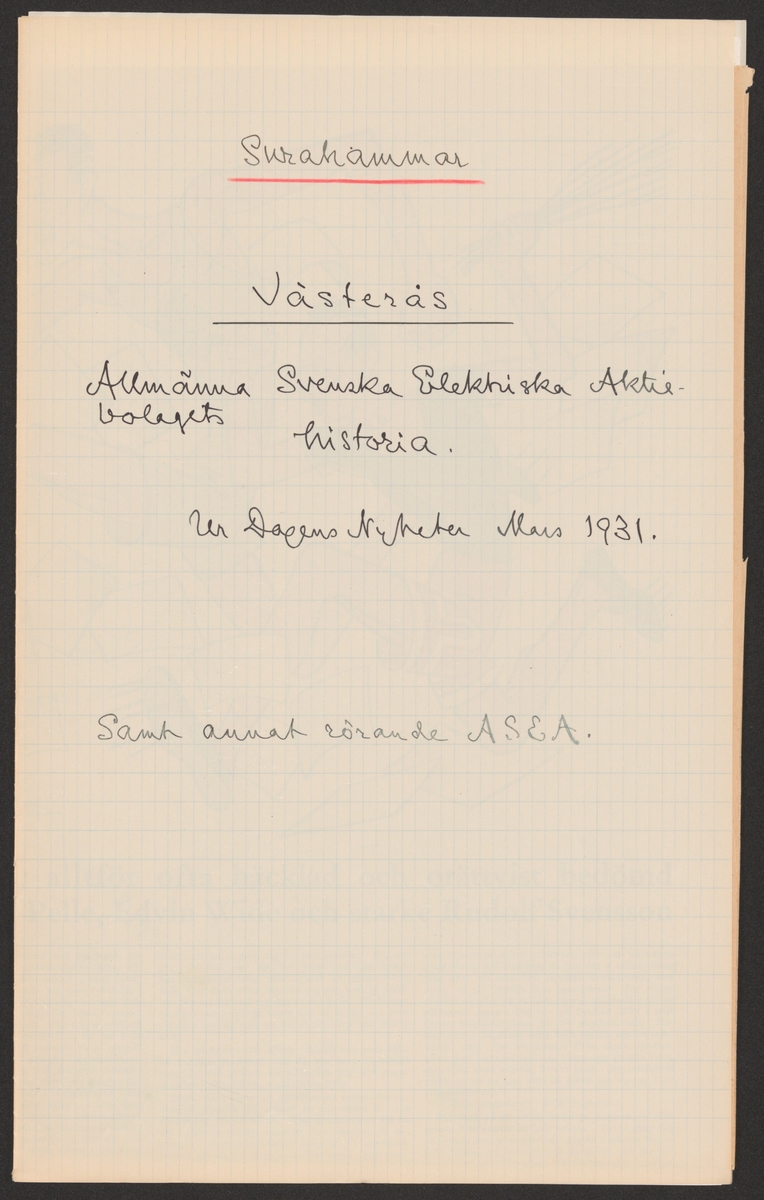 Surahammar
Västerås
Allmänna Svenska Elektriska Aktie-
bolagets
historia.
Ur Dagens Nyheter Mars 1931.
Samt annat rörande ASEA.